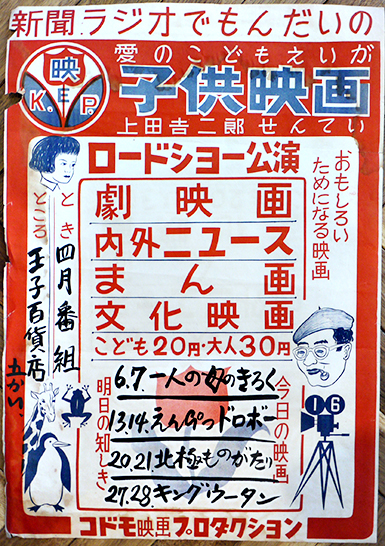 新聞.ラジオでもんだいの
愛のこどもえいが
子供映画
映
K.E.P.
上田吉二郎せんてい
ロードショー公演
おもしろい
ためになる映画
劇映画
内外ニュース
まん画
文化映画
こども20円・大人30円
とき 四月番組
ところ 王子百貨店
五かい
今日の映画
明日の知しき
6.7.一人の母のきろく
13.14.えんぴつドロボー
20.21.北極ものがたり
27.28.キングウータン
16
コドモ映画プロダクション